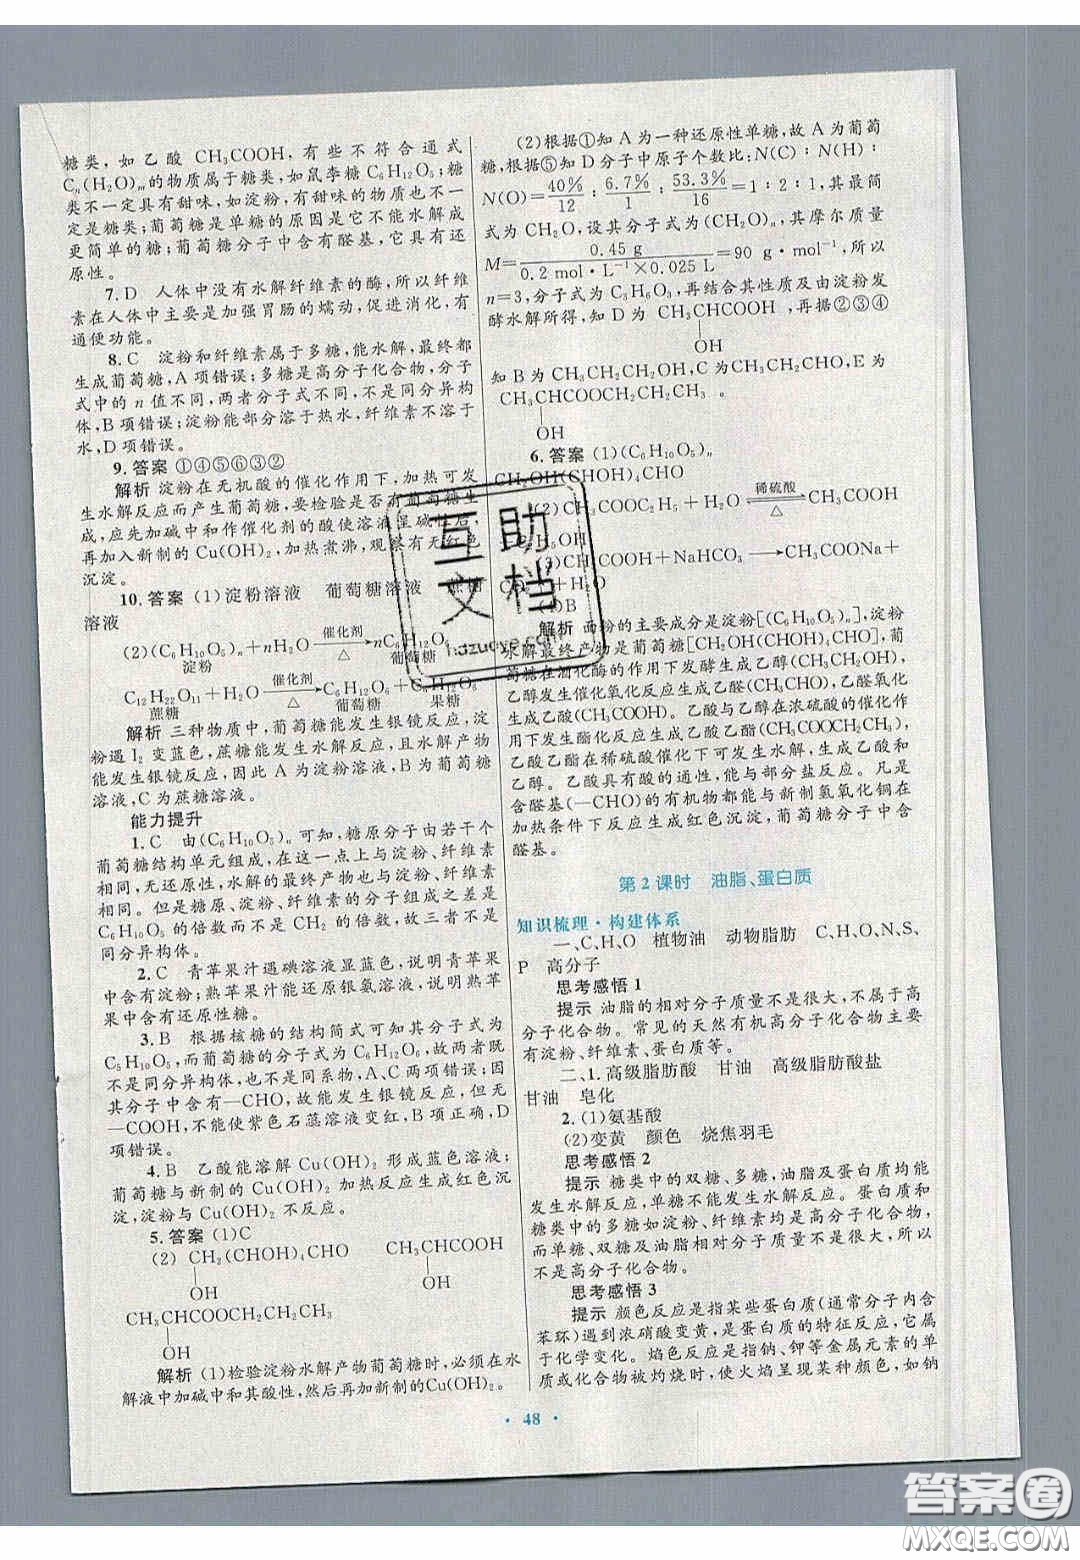 糖类,如乙酸 CH₃COOH,有些不符合通式
Cₙ(H₂O)ₘ的物质属于糖类,如鼠李糖 C₆H₁₂O₅;糖
类不一定具有甜味,如淀粉,有甜味的物质也不一
定是糖类;葡萄糖是单糖的原因是它不能水解成
更简单的糖;葡萄糖分子中含有醛基,它具有还
原性。
7. D 人体中没有水解纤维素的酶,所以纤维
素在人体中主要是加强胃肠的蠕动,促进消化,有
通便功能。
8. C 淀粉和纤维素属于多糖,能水解,最终都
生成葡萄糖,A 项错误;多糖是高分子化合物,分子
式中的 n 值不同,两者分子式不同,不是同分异构
体,B 项错误;淀粉能部分溶于热水,纤维素不溶于
水,D 项错误。
9. 答案 ①④⑤⑥③②
解析 淀粉在无机酸的催化作用下,加热可发
生水解反应而产生葡萄糖,要检验是否有葡萄糖生
成,应先加碱中和作催化剂的酸使溶液呈碱性后,
再加入新制的 Cu(OH)₂,加热煮沸,观察有无红色
沉淀。
10. 答案 (1)淀粉溶液 葡萄糖溶液 蔗糖
溶液
(2)(C₆H₁₀O₅)ₙ+nH₂O 催化剂 △ nC₆H₁₂O₆
淀粉 葡萄糖
C₁₂H₂₂O₁₁+H₂O 催化剂 △ C₆H₁₂O₆+C₆H₁₂O₆
蔗糖 葡萄糖 果糖
解析 三种物质中,葡萄糖能发生银镜反应,淀
粉遇 I₂ 变蓝色,蔗糖能发生水解反应,且水解产物
能发生银镜反应,因此 A 为淀粉溶液,B 为葡萄糖
溶液,C 为蔗糖溶液。
能力提升
1. C 由(C₆H₁₀O₅)ₙ 可知,糖原分子由若干个
葡萄糖结构单元组成,在这一点上与淀粉、纤维素
相同,无还原性,水解的最终产物也与淀粉、纤维素
相同。但是糖原、淀粉、纤维素的分子组成都是
C₆H₁₀O₅ 的倍数而不是 CH₂ 的倍数,故三者不是
同分异构体。
2. C 青苹果汁遇碘溶液显蓝色,说明青苹果
中含有淀粉;熟苹果汁能还原银氨溶液,说明熟苹
果中含有还原性糖。
3. B 根据核糖的结构简式可知其分子式为
C₅H₁₀O₅,而葡萄糖的分子式为 C₆H₁₂O₆,故两者既
不是同分异构体,也不是同系物,A、C 两项错误;因
其分子中含—CHO,故能发生银镜反应,不含
—COOH,不能使紫色石蕊溶液变红,B 项正确,D
项错误。
4. B 乙酸能溶解 Cu(OH)₂ 形成蓝色溶液;
葡萄糖与新制的 Cu(OH)₂ 加热反应生成红色沉
淀,淀粉与 Cu(OH)₂ 不反应。
5. 答案 (1)C
(2) CH₂(CHOH)₄CHO CH₃CHCOOH
OH OH
CH₃CHCOOCH₂CH₂CH₃
OH
解析 (1)检验淀粉水解产物葡萄糖时,必须在水
解液中加碱中和其酸性,然后再加新制的Cu(OH)₂。
(2)根据①知 A 为一种还原性单糖,故 A 为葡萄
糖,根据⑤知 D 分子中原子个数比:N(C)∶N(H)∶
N(O)=40%/12∶6.7%/1∶53.3%/16=1∶2∶1,其最简
式为 CH₂O,设其分子式为(CH₂O)ₙ,其摩尔质量
M=0.45 g/(0.2 mol·L⁻¹×0.025 L)=90 g·mol⁻¹,所以
n=3,分子式为 C₃H₆O₃,再结合其性质及由淀粉发
酵水解所得,知 D 为 CH₃CHCOOH,再据②③④
OH
知 B 为 CH₃CH₂CH₂OH,C为CH₃CH₂CHO,E 为
CH₃CHCOOCH₂CH₂CH₃ 。
OH
6. 答案 (1)(C₆H₁₀O₅)ₙ
CH₂OH(CHOH)₄CHO
(2)CH₃COOC₂H₅+H₂O 稀硫酸 △ CH₃COOH
+C₂H₅OH
(3)CH₃COOH+NaHCO₃⟶CH₃COONa+
CO₂↑+H₂O
(4)B
解析 面粉的主要成分是淀粉[(C₆H₁₀O₅)ₙ],淀粉
水解最终产物是葡萄糖[CH₂OH(CHOH)₄CHO],葡
萄糖在酒化酶的作用下发酵生成乙醇(CH₃CH₂OH),
乙醇发生催化氧化反应生成乙醛(CH₃CHO),乙醛氧化
生成乙酸(CH₃COOH)。乙酸与乙醇在浓硫酸的催化作
用下发生酯化反应生成乙酸乙酯(CH₃COOCH₂CH₃),
乙酸乙酯在稀硫酸催化下可发生水解,生成乙酸和
乙醇。乙酸具有酸的通性,能与部分盐反应。凡是
含醛基(—CHO)的有机物都能与新制氢氧化铜在
加热条件下反应生成红色沉淀,葡萄糖分子中含
醛基。
第 2 课时 油脂、蛋白质
知识梳理·构建体系
一、C、H、O 植物油 动物脂肪 C、H、O、N、S、
P 高分子
思考感悟 1
提示 油脂的相对分子质量不是很大,不属于高
分子化合物。常见的天然有机高分子化合物主要
有淀粉、纤维素、蛋白质等。
二、1. 高级脂肪酸 甘油 高级脂肪酸盐
甘油 皂化
2. (1)氨基酸
(2)变黄 颜色 烧焦羽毛
思考感悟 2
提示 糖类中的双糖、多糖,油脂及蛋白质均能
发生水解反应,单糖不能发生水解反应。蛋白质和
糖类中的多糖如淀粉、纤维素均是高分子化合物,
而单糖、双糖及油脂相对分子质量不是很大,所以
不是高分子化合物。
思考感悟 3
提示 颜色反应是指某些蛋白质(通常分子内含
苯环)遇到浓硝酸变黄,是蛋白质的特征反应,它属
于化学变化。焰色反应是指钠、钾等金属元素的单
质或化合物被灼烧时,使火焰呈现某种颜色,如钠
· 48 ·
互助
文档
答案圈
MXQE.COM